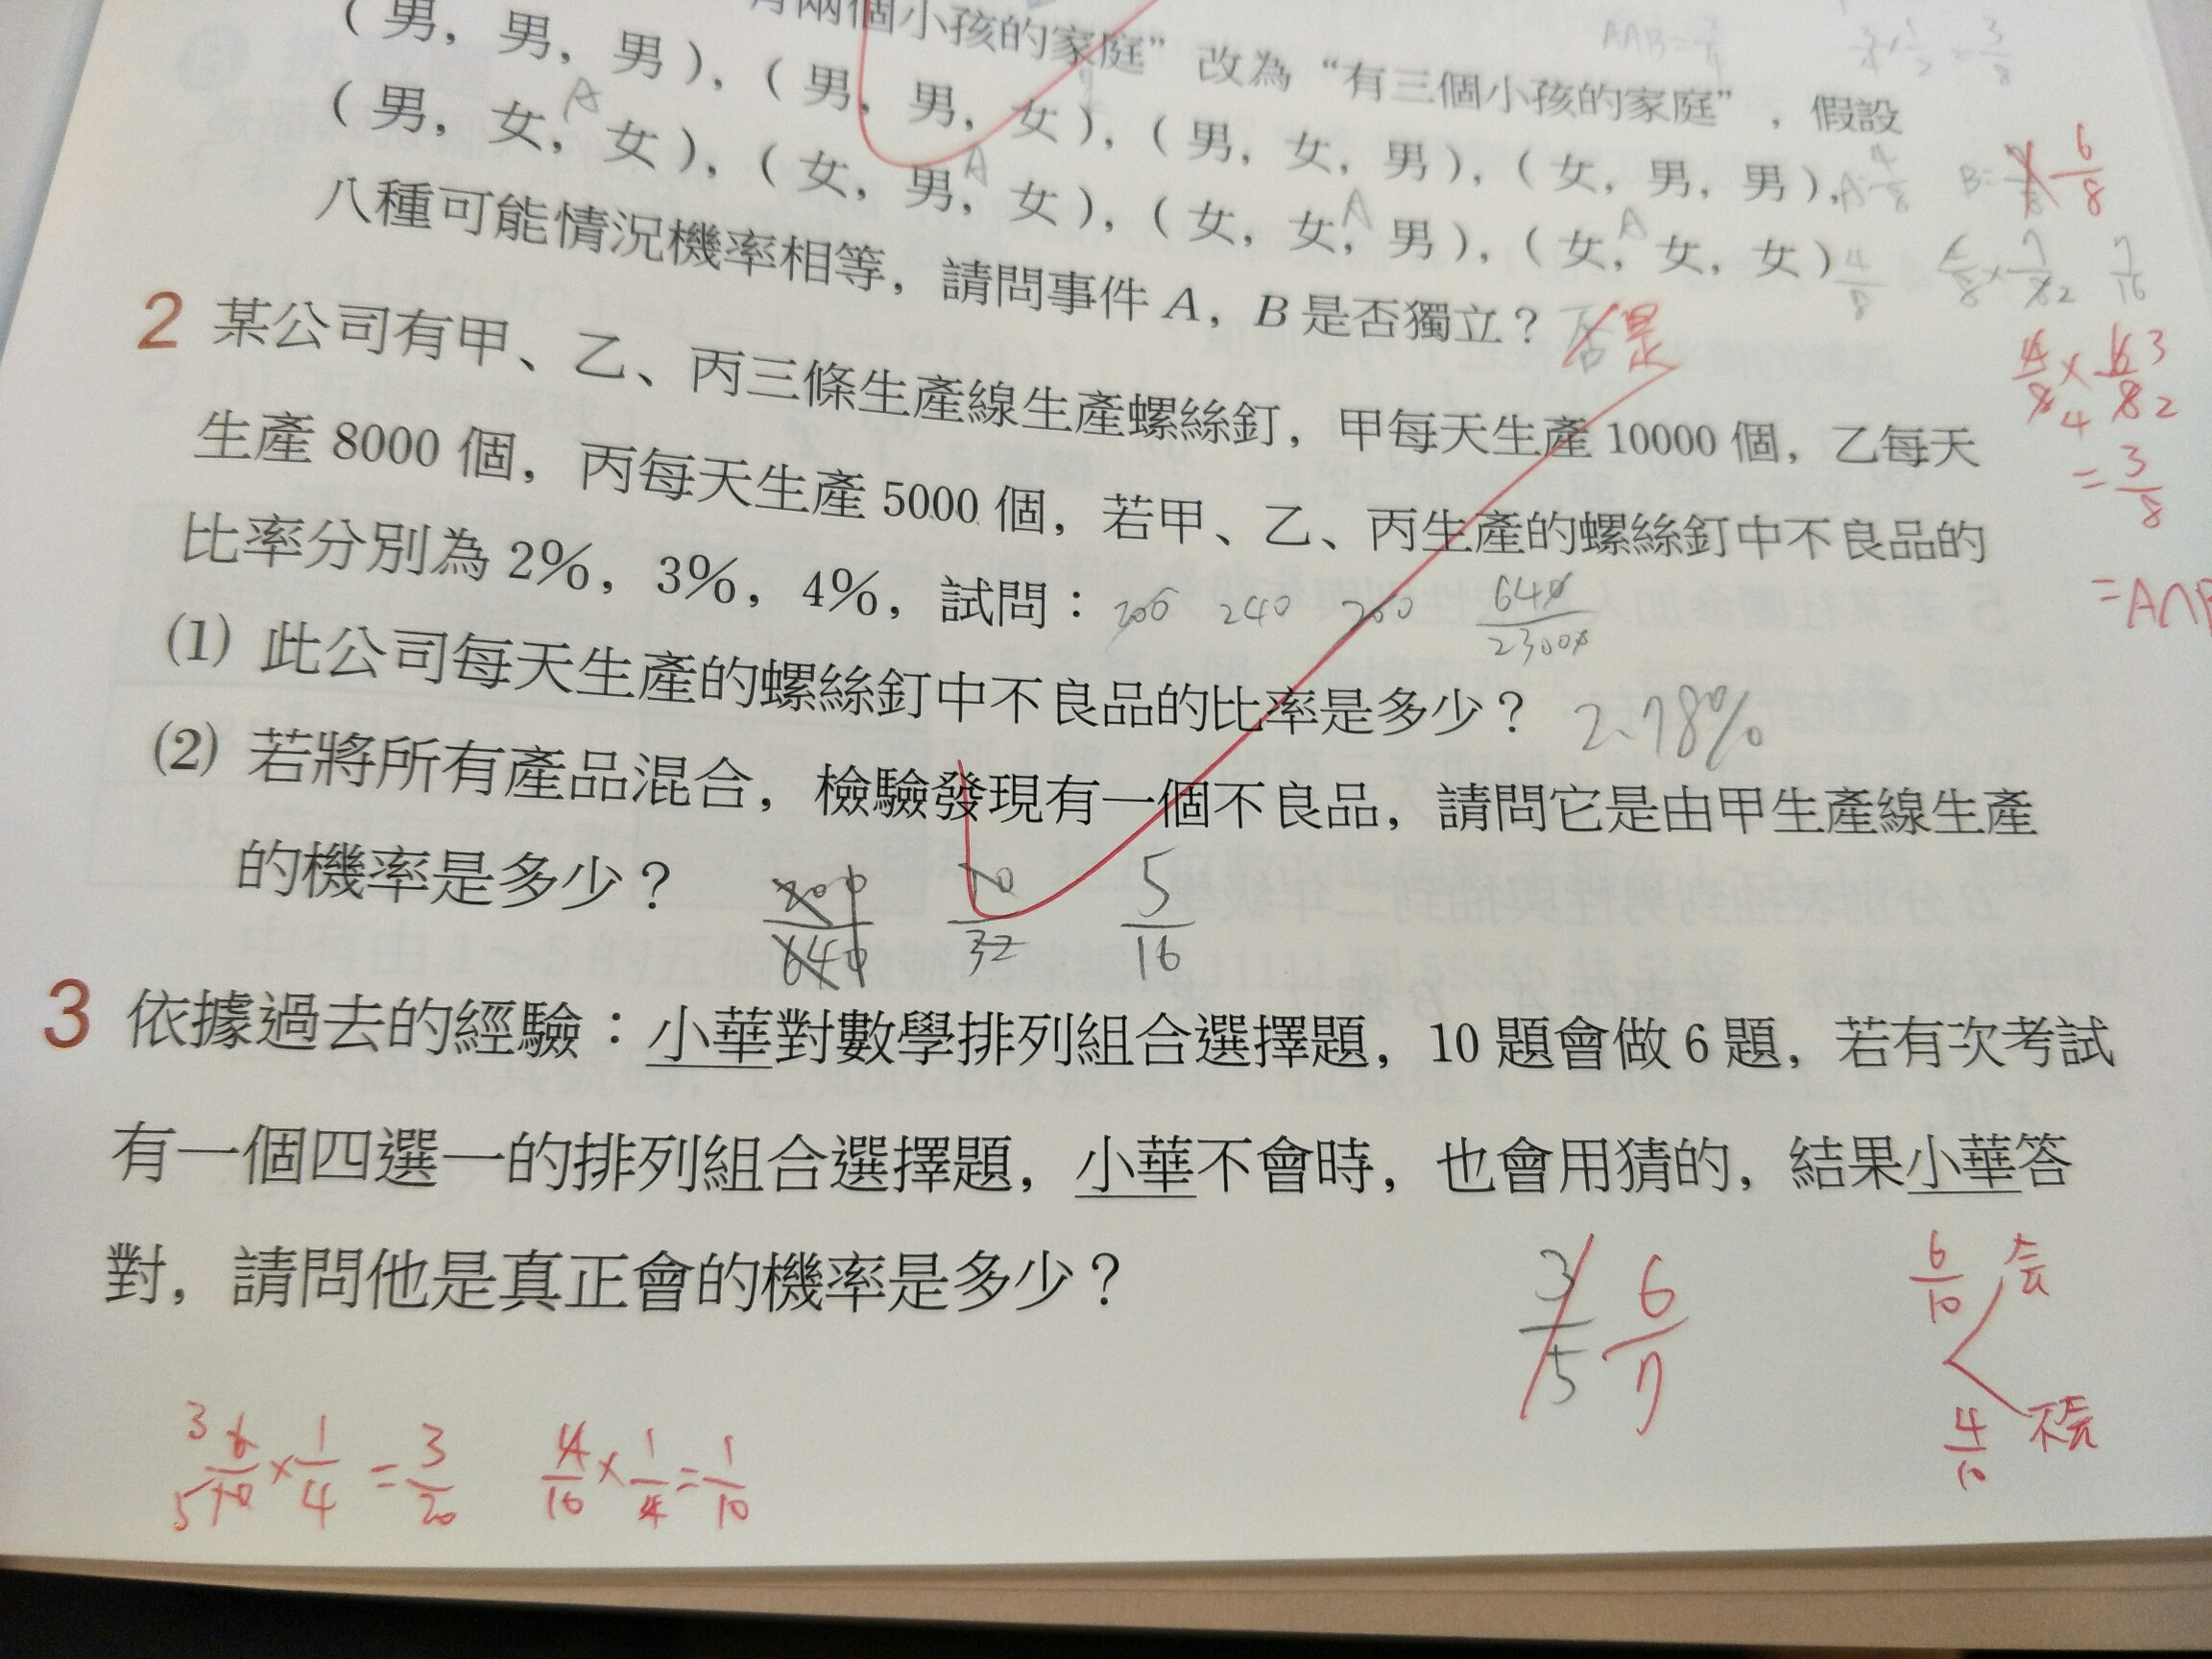 有兩個小孩的家庭”改為“有三個小孩的家庭”，假設
(男，男，男)，(男，男，女)，(男，女，男)，(女，男，男)，
(男，女，女)，(女，男，女)，(女，女，男)，(女，女，女)
A A A A
八種可能情況機率相等，請問事件 A，B 是否獨立？ 否 是
A 4/8 B= 6/8
4/8
7/16
4/8 × 6/8 3 4 2
= 3/8
=A∩B
2 某公司有甲、乙、丙三條生產線生產螺絲釘，甲每天生產 10000 個，乙每天
生產 8000 個，丙每天生產 5000 個，若甲、乙、丙生產的螺絲釘中不良品的
比率分別為 2%，3%，4%，試問： 200 240 200 640/23000
(1) 此公司每天生產的螺絲釘中不良品的比率是多少？ 2.78%
(2) 若將所有產品混合，檢驗發現有一個不良品，請問它是由甲生產線生產
的機率是多少？ 200/640 10/32 5/16
3 依據過去的經驗：小華對數學排列組合選擇題，10 題會做 6 題，若有次考試
有一個四選一的排列組合選擇題，小華不會時，也會用猜的，結果小華答
對，請問他是真正會的機率是多少？
3/5 6/7
6/10 会
4/10 不会
3 6/10 5 × 1/4 = 3/20 4/10 × 1/4 = 1/10